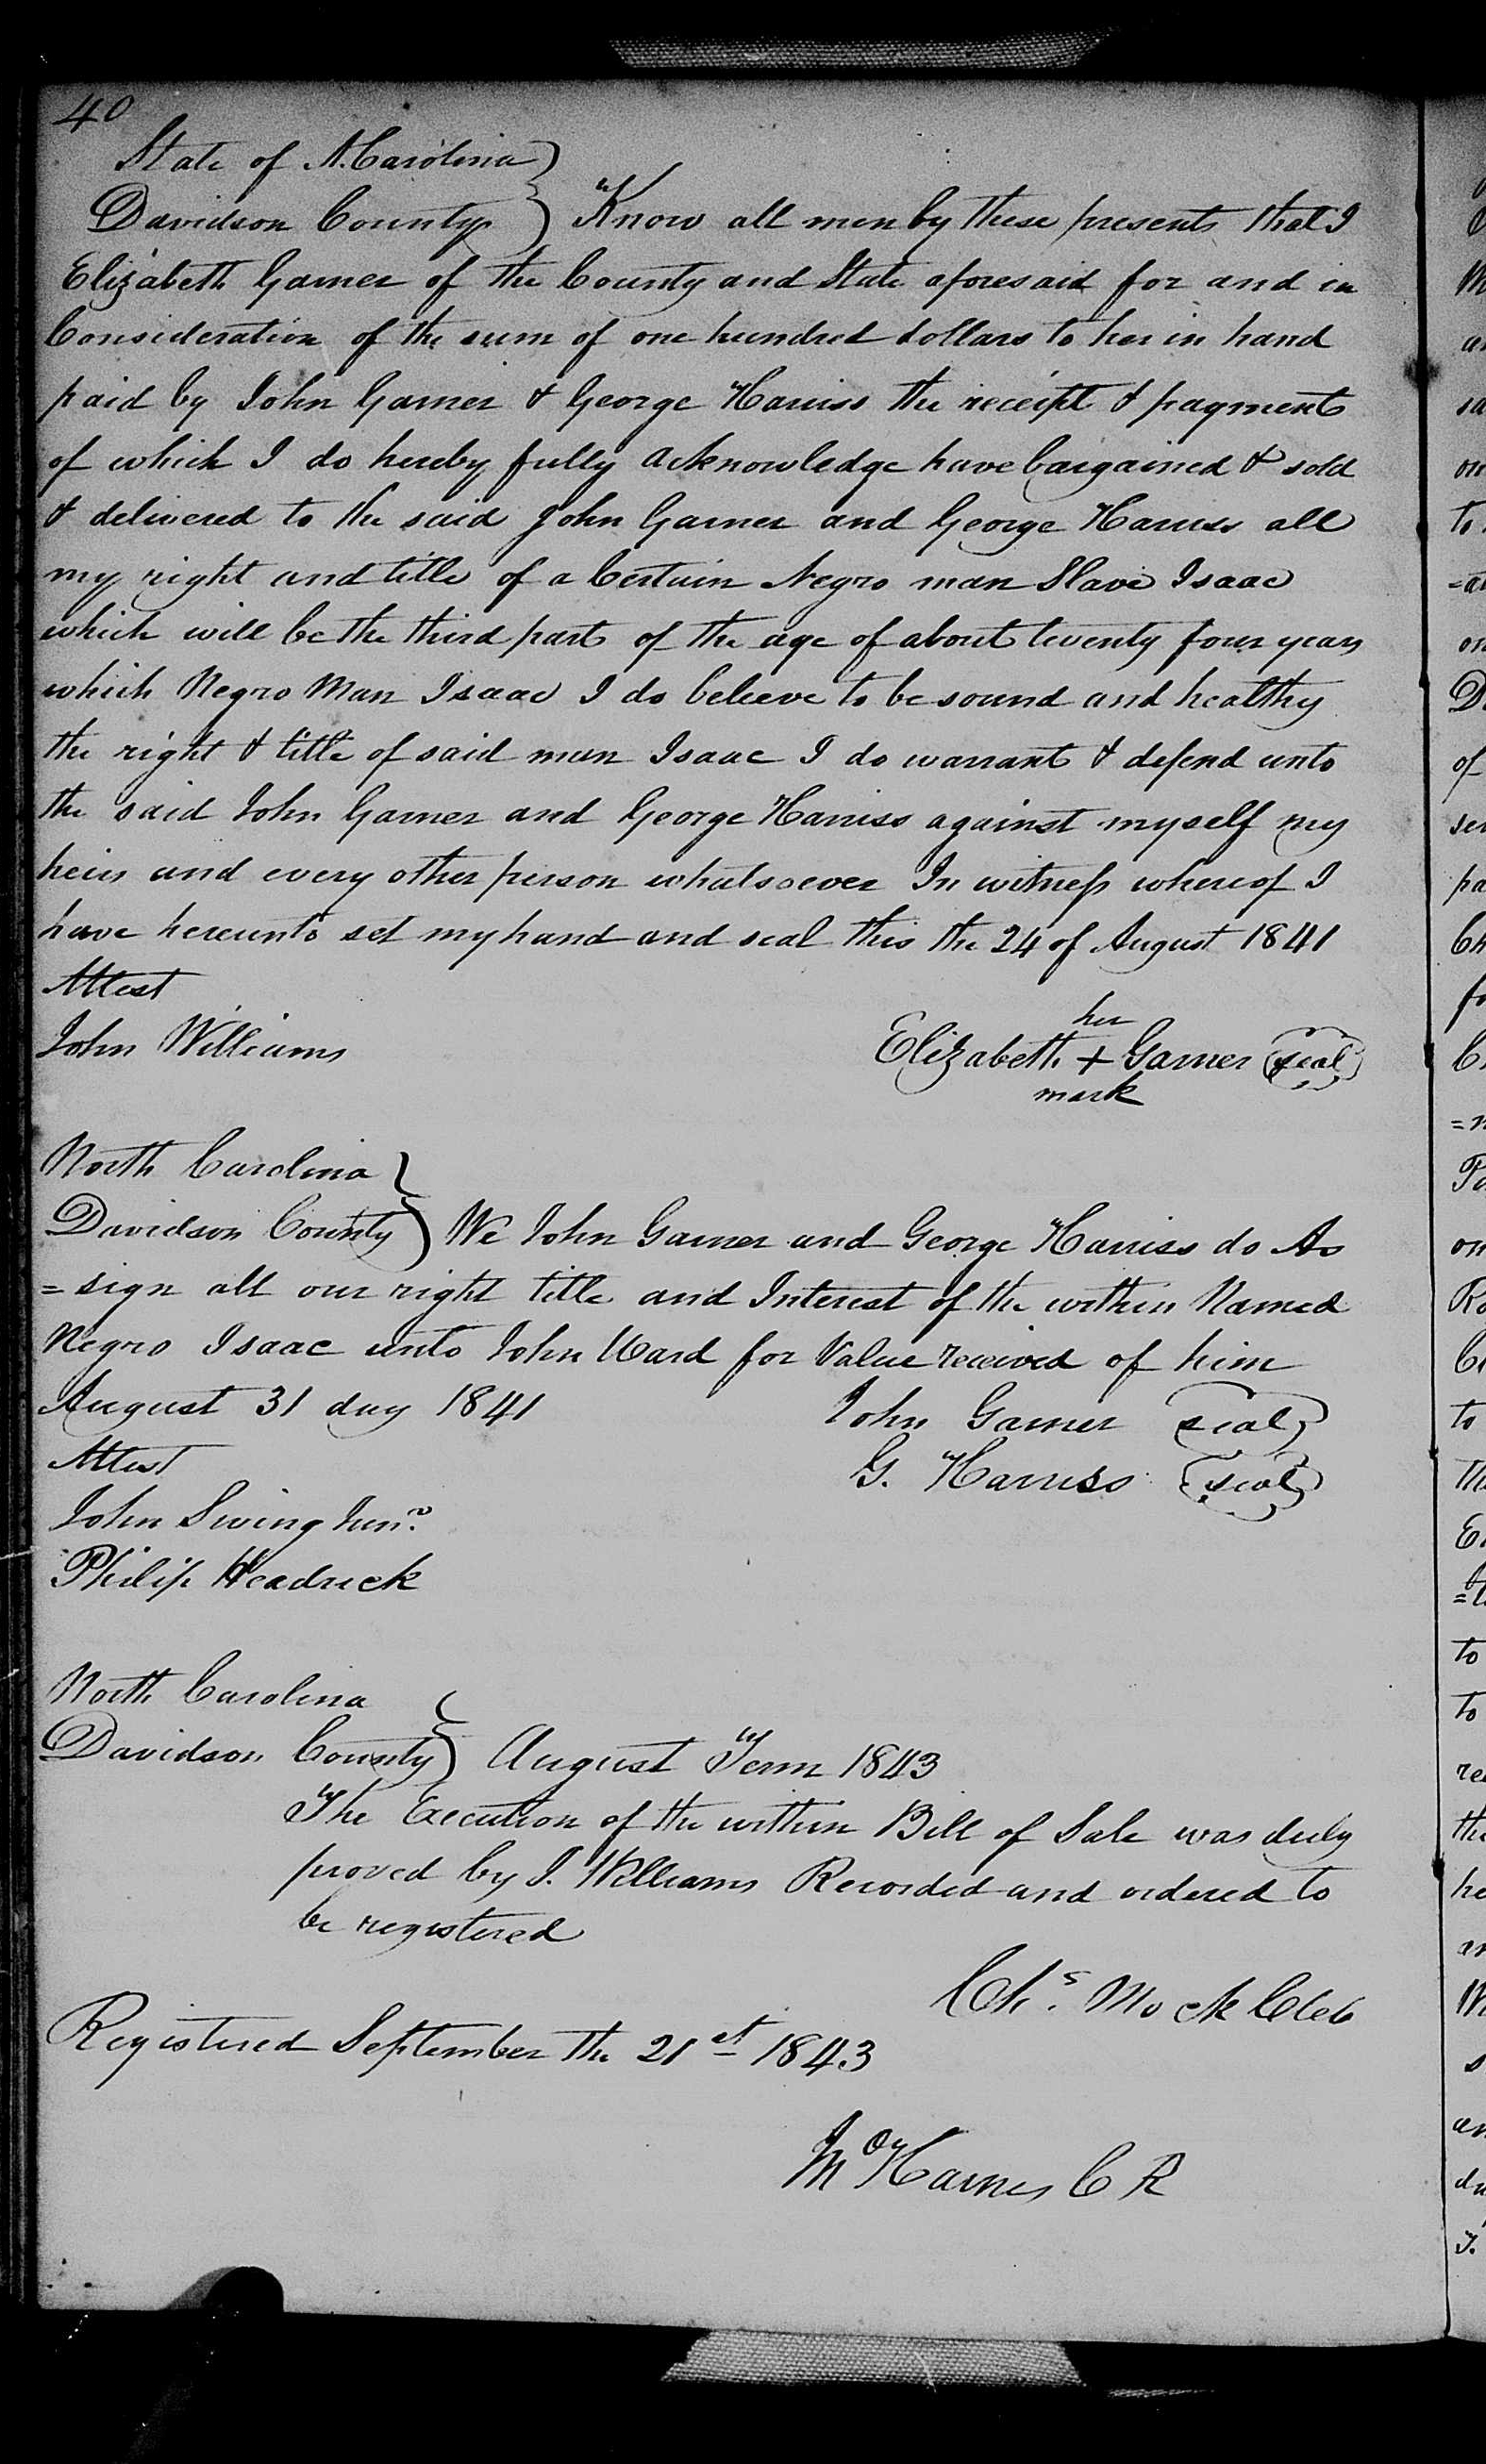 40
State of N. Carolina }
Davidson County } Know all men by these presents that I
Elizabeth Garner of the County and State aforesaid for and in
Consideration of the sum of one hundred dollars to her in hand
paid by John Garner & George Harriss the receipt & payment
of which I do hereby fully acknowledge have bargained & sold
& delivered to the said John Garner and George Harriss all
my right and title of a Certain Negro man Slave Isaac
which will be the third part of the age of about twenty four years
which Negro Man Isaac I do beleeve to be sound and healthy
the right & title of said man Isaac I do warrant & defend unto
the said John Garner and George Harriss against myself my
heirs and every other person whatsoever In witness whereof I
have hereunto set my hand and seal this the 24 of August 1841
Attest
John Williams
her
Elizabeth + Garner (seal)
mark
North Carolina }
Davidson County } We John Garner and George Harriss do As
=sign all our right title and Interest of the within Named
Negro Isaac unto John Ward for Value received of him
August 31 day 1841 John Garner (seal)
Attest G. Harriss (seal)
John Swing Junr.
Philip Headrick
North Carolina }
Davidson County } August Term 1843
The Execution of the within Bill of Sale was duly
proved by J. Williams Recorded and ordered to
be registered
Chs. Mock Clek
Registered September the 21st 1843